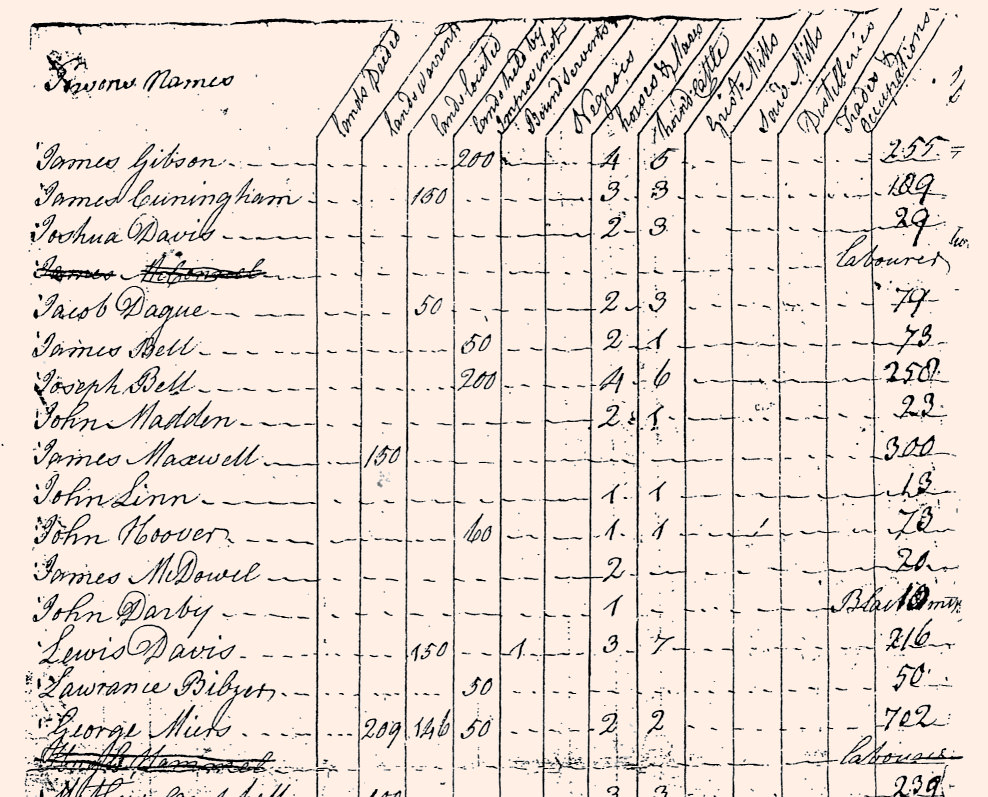 Persons Names lands Deeded lands warrented lands located lands held by Improvment Bound Servents Negroes horses & Mares horned Cattle Griste Mills Saw Mills Distilleries Trades & occupations
James Gibson 200 4 5 255
James Cuningham 150 3 3 189
Joshua Davis 2 3 29
James McConnel labourer
Jacob Dague 50 2 3 79
James Bell 50 2 1 73
Joseph Bell 200 4 6 258
John Madden 2 1 23
James Maxwell 150 300
John Linn 1 1 13
John Hoover 60 1 1 1 73
James McDowel 2 20
John Darby 1 Blacksmith 10
Lewis Davis 150 1 3 7 216
Lawrance Bibzer 50 50
George Miers 209 146 50 2 2 702
labourer
100 3 3 239